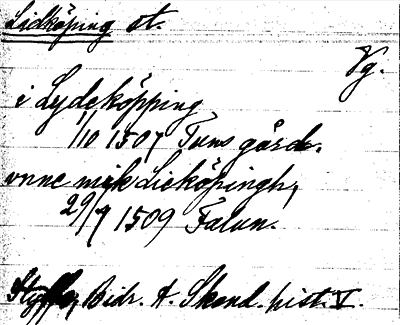 Lidköping st.
Vg.
i Lydeköpping
1/10 1507 Tuns gård.
vnne mik Lieköpingh,
29/9 1509 Falun.
Styffe, Bidr. t. Skand. hist. V.